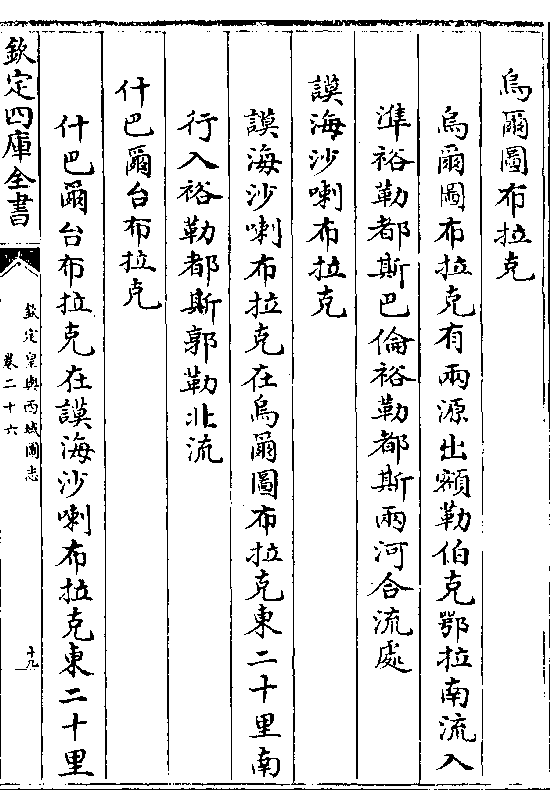 烏爾圖布拉克
烏爾圖布拉克有兩源出額勒伯克鄂拉南流入
準裕勒都斯巴倫裕勒都斯兩河合流處
謨海沙喇布拉克
謨海沙喇布拉克在烏爾圖布拉克東二十里南
行入裕勒都斯郭勒北流
什巴爾台布拉克
什巴爾台布拉克在謨海沙喇布拉克東二十里
欽定四庫全書
欽定皇輿西域圖志
卷二十六
十九